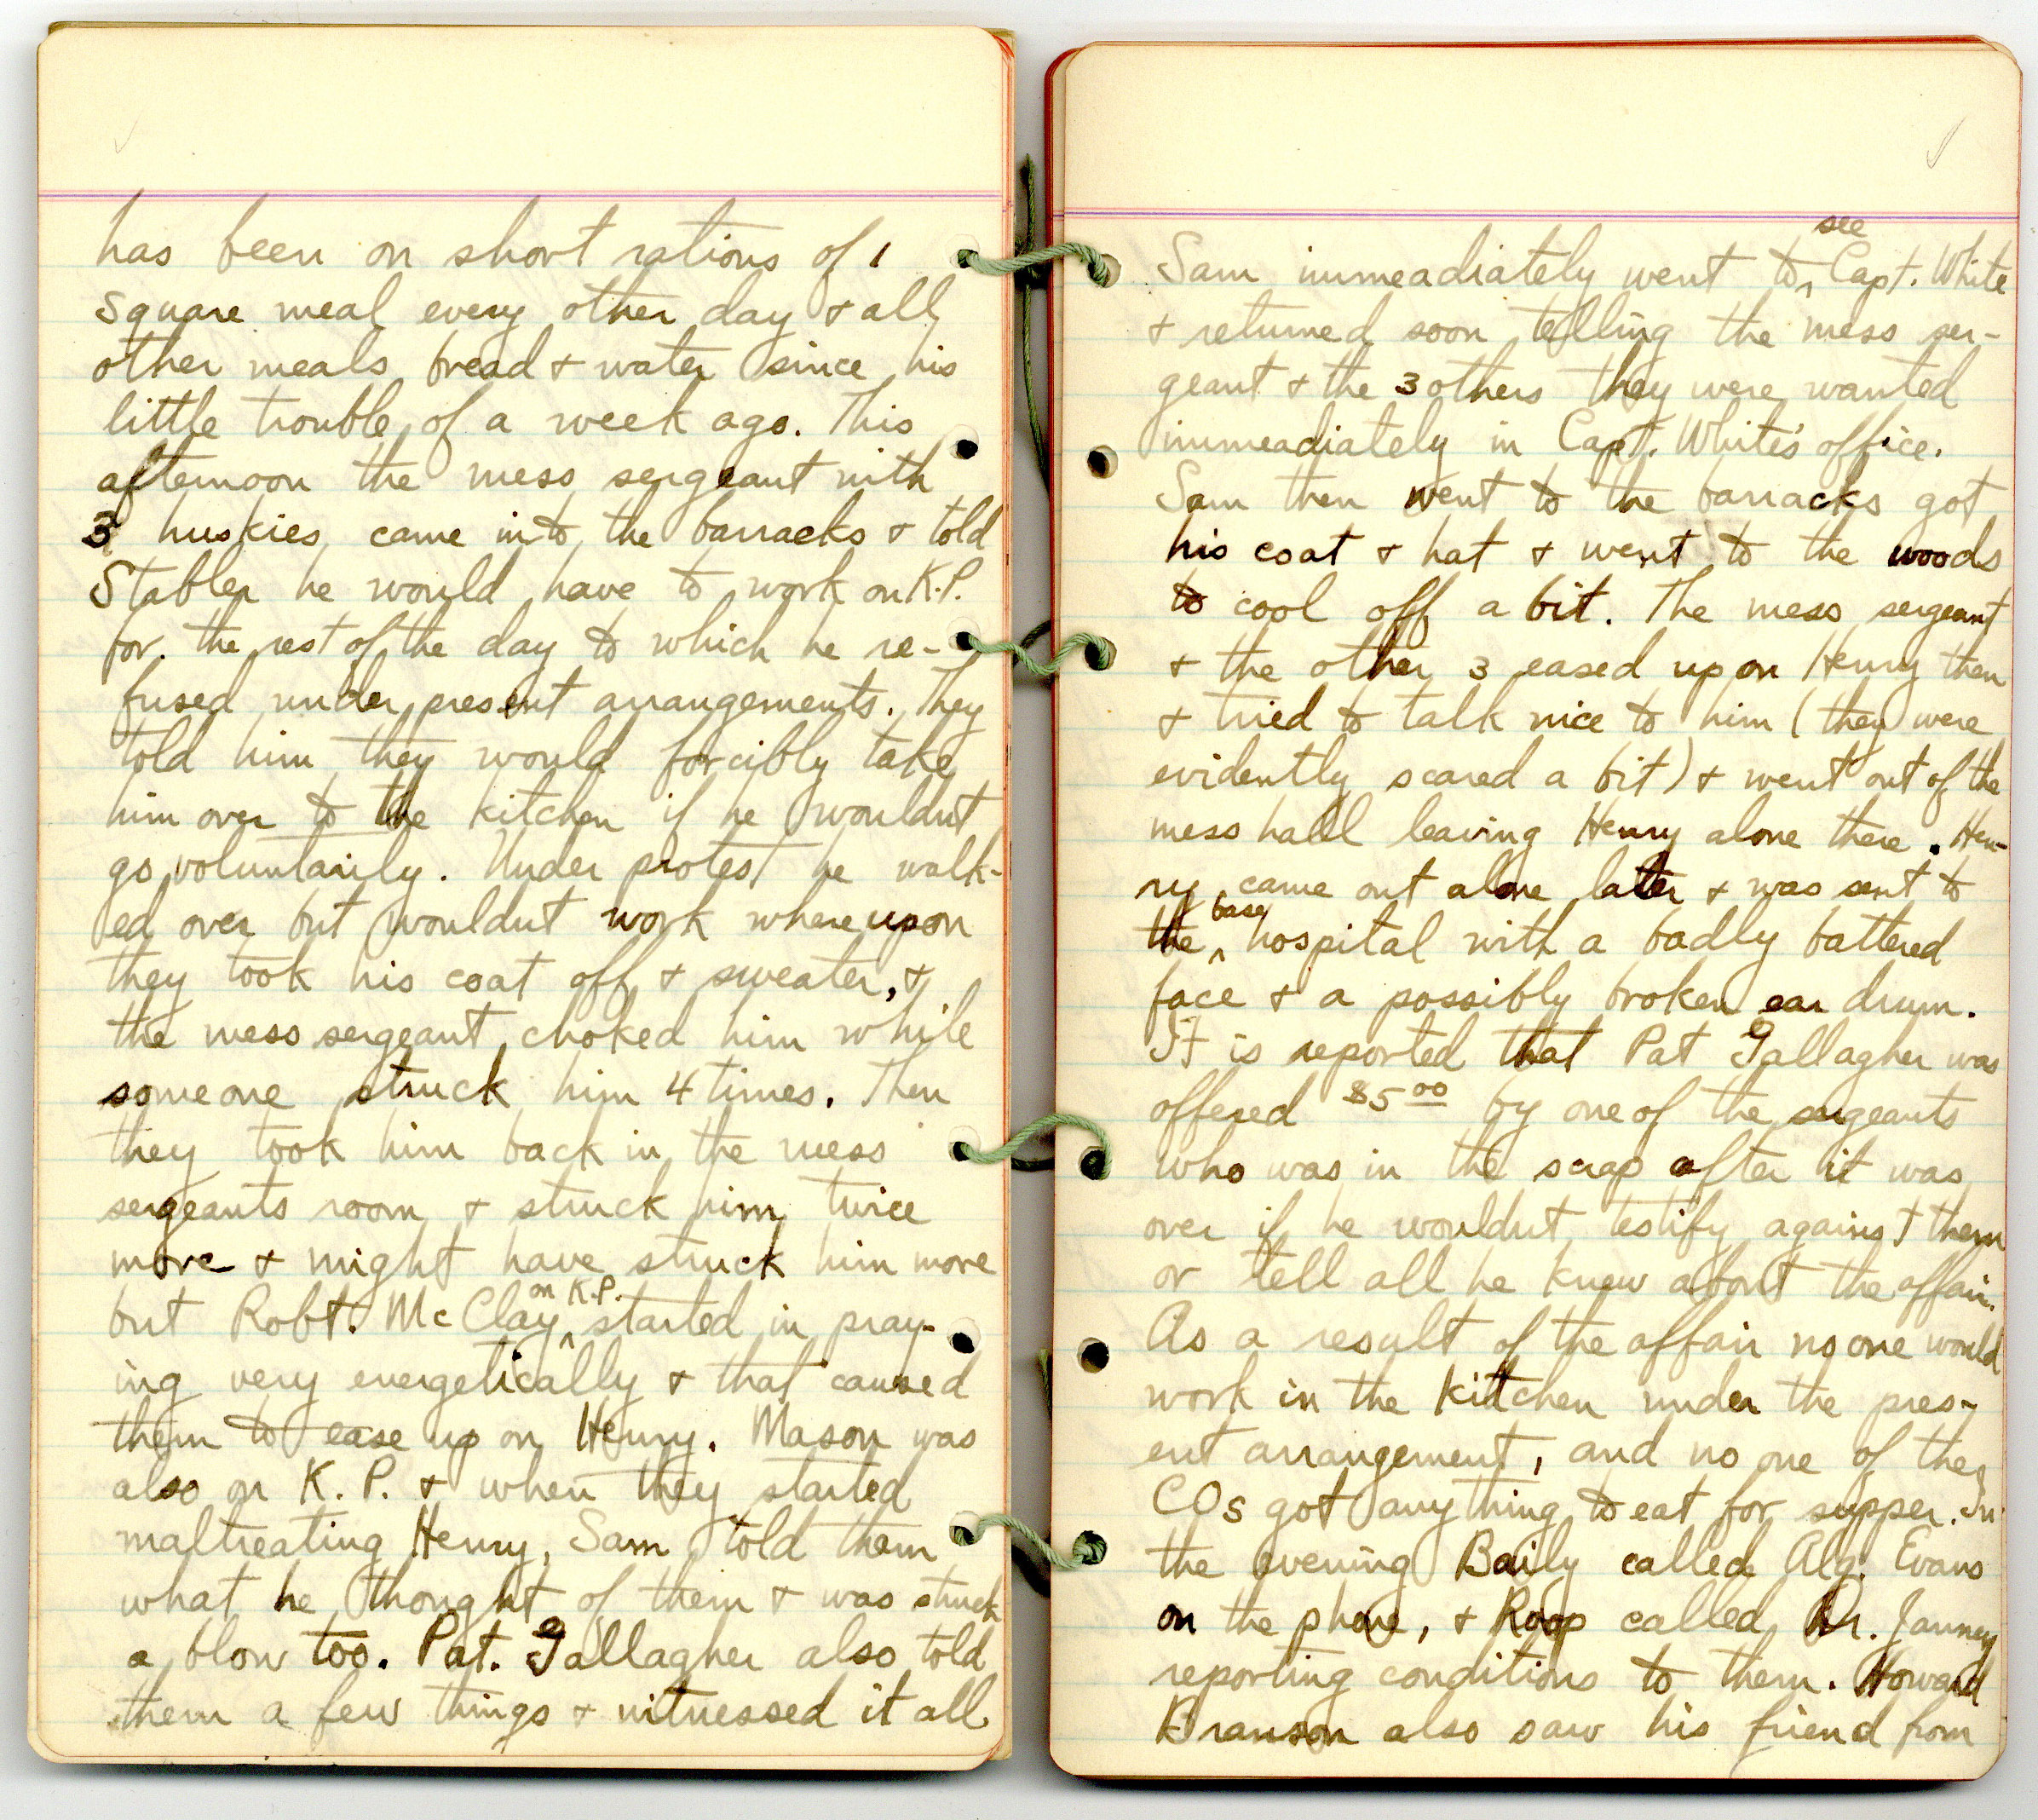 has been on short rations of 1
square meal every other day & all
other meals bread & water since his
little trouble of a week ago. This
afternoon the mess sergeant with
3 huskies came into the barracks & told
Stabler he would have to work on K.P.
for the rest of the day to which he re-
fused under present arrangements. They
told him they would forcibly take
him over to the kitchen if he wouldnt
go voluntarily. Under protest he walk-
ed over but wouldnt work whereupon
they took his coat off & sweater, &
the mess sergeant choked him while
someone struck him 4 times. Then
they took him back in the mess
sergeants room & struck him twice
more & might have struck him more
but Robt. McClay on K.P. started in pray-
ing very energetically & that caused
them to ease up on Henry. Mason was
also on K. P. & when they started
maltreating Henry, Sam told them
what he thought of them & was struck
a blow too. Pat. Gallagher also told
them a few things & witnessed it all.
Sam immeadiately went to see Capt. White
& returned soon telling the mess ser-
geant & the 3 others they were wanted
immeadiately in Capt. White's office.
Sam then went to the barracks got
his coat & hat & went to the woods
to cool off a bit. The mess sergeant
& the other 3 eased up on Henry then
& tried to talk nice to him (they were
evidently scared a bit) & went out of the
mess hall leaving Henry alone there. Hen-
ry came out alone later & was sent to
the base hospital with a badly battered
face & a possibly broken ear drum.
It is reported that Pat Gallagher was
offered $5.00 by one of the sergeants
who was in the scrap after it was
over if he wouldnt testify against them
or tell all he knew about the affair.
As a result of the affair no one would
work in the kitchen under the pres-
ent arrangement, and no one of the
COs got anything to eat for supper. In
the evening Baily called Alg. Evans
on the phone, & Roop called Dr. Janney
reporting conditions to them. Howard
Branson also saw his friend from